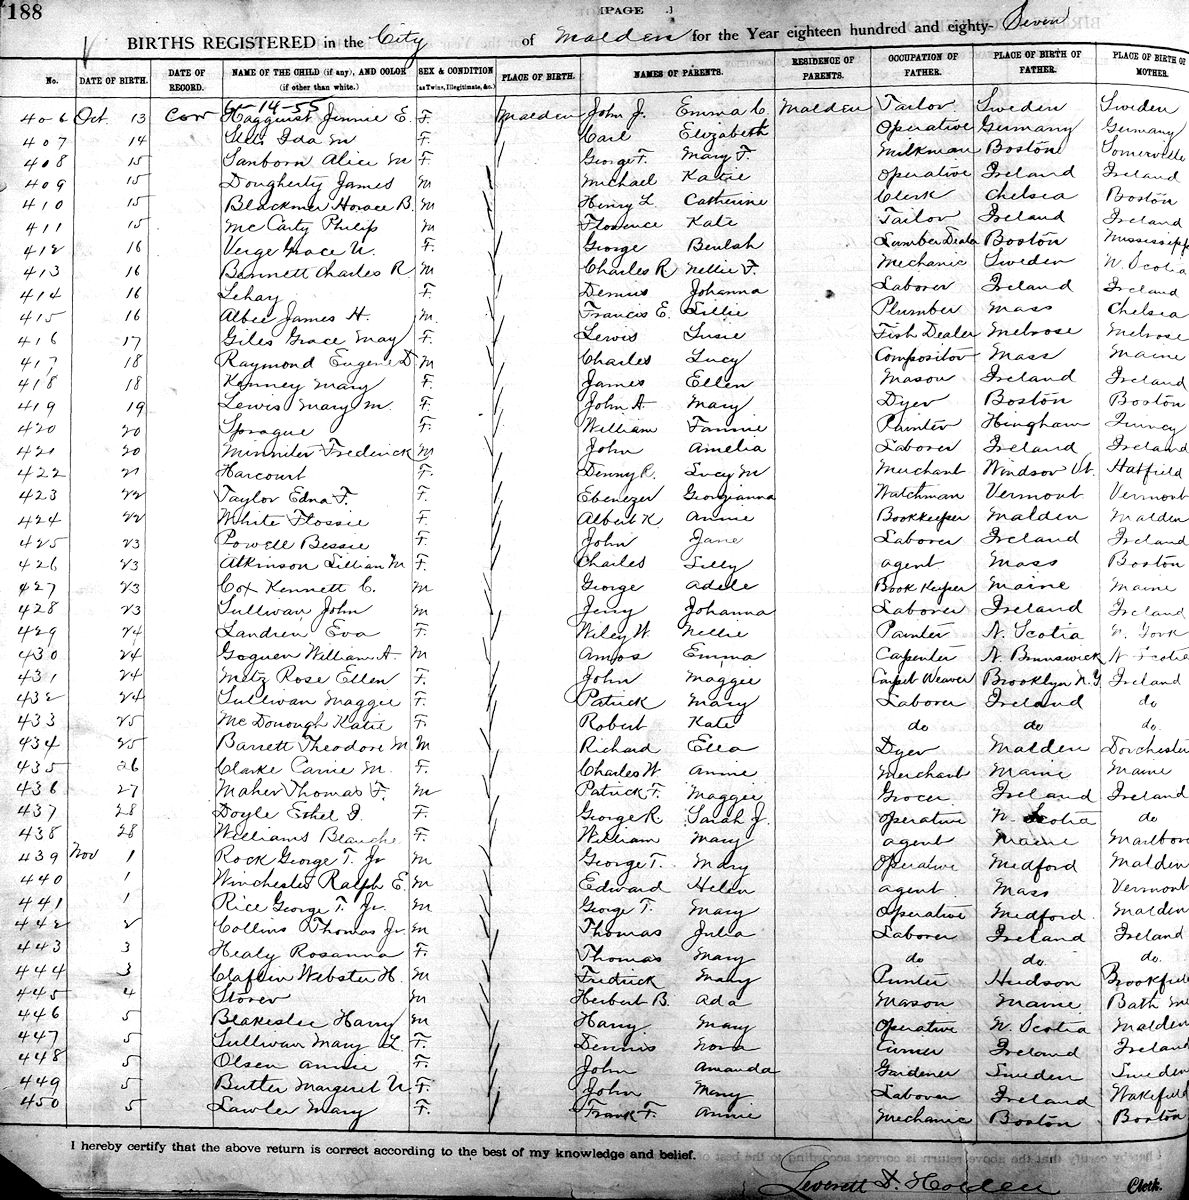 188
PAGE
BIRTHS REGISTERED in the City of Malden for the Year eighteen hundred and eighty- Seven
No. DATE OF BIRTH. DATE OF RECORD. NAME OF THE CHILD (if any), AND COLOR (if other than white.) SEX & CONDITION (as Twins, Illegitimate, &c.) PLACE OF BIRTH. NAMES OF PARENTS. RESIDENCE OF PARENTS. OCCUPATION OF FATHER. PLACE OF BIRTH OF FATHER. PLACE OF BIRTH OF MOTHER.
6-14-55
406 Oct. 13 Cor Hagquist Jennie E. F. Malden John J. Emma C. Malden Tailor Sweden Sweden
407 14 Ida M F. Carl Elizabeth Operative Germany Germany
408 15 Sanborn Alice M F. George F. Mary F. Milkman Boston Somerville
409 15 Dougherty James M Michael Katie Operative Ireland Ireland
410 15 Blackmer Horace B. M Henry L. Catherine Clerk Chelsea Boston
411 15 McCarty Philip M Florence Kate Tailor Ireland Ireland
412 16 Verge Grace U. F. George Beulah Lumber Dealer Boston Mississippi
413 16 Bennett Charles R M Charles R Nellie F. Mechanic Sweden N. Scotia
414 16 Lehay F. Dennis Johanna Laborer Ireland Ireland
415 16 Albee James H. M. Francis E. Lillie Plumber Mass Chelsea
416 17 Giles Grace May F. Lewis Susie Fish Dealer Melrose Melrose
417 18 Raymond Eugene D. M Charles Lucy Compositor Mass Maine
418 18 Kenney Mary F. James Ellen Mason Ireland Ireland
419 19 Lewis Mary M. F. John A. Mary Dyer Boston Boston
420 20 Sprague F. William Fannie Painter Hingham Quincy
421 20 Minniter Frederick M John Amelia Laborer Ireland Ireland
422 21 Harcourt F. Denny C. Lucy M Merchant Windsor Vt. Hatfield
423 22 Taylor Edna F. F. Ebenezer Georgianna Watchman Vermont Vermont
424 22 White Flossie F. Albert K Annie Bookkeeper Malden Malden
425 23 Powell Bessie F. John Jane Laborer Ireland Ireland
426 23 Atkinson Lillian M F. Charles Lilly agent Mass Boston
427 23 Cox Kennett C. M George Adele Book Keeper Maine Maine
428 23 Sullivan John M Jerry Johanna Laborer Ireland Ireland
429 24 Landrien Eva F. Wiley W. Nellie Painter N. Scotia N. York
430 24 Goguen William A. M Amos Emma Carpenter N. Brunswick N Scotia
431 24 Metz Rose Ellen F. John Maggie Carpet Weaver Brooklyn N.Y Ireland
432 24 Sullivan Maggie F. Patrick Mary Laborer Ireland do
433 25 McDonough Katie F. Robert Kate do do do.
434 25 Barrett Theodore M M Richard Ella Dyer Malden Dorchester
435 26 Clarke Carrie M. F. Charles W. Annie Merchant Maine Maine
436 27 Maher Thomas F. M Patrick F. Maggie Grocer Ireland Ireland
437 28 Doyle Ethel I. F. George R. Sarah J. Operative N. Scotia do
438 28 Williams Blanche F. William Mary agent Maine Marlboro
439 Nov 1 Rock George T. Jr M George T. Mary Operative Medford Malden
440 1 Winchester Ralph E. M Edward Helen agent Mass Vermont
441 1 Rice George T. Jr. M George T. Mary Operative Medford. Malden
442 2 Collins Thomas Jr. M Thomas Julia Laborer Ireland Ireland
443 3 Healy Rosanna F. Thomas Mary do do. do.
444 3 Claflin Webster H. M Fredrick Mary Printer Hudson Brookfield
445 4 Storer M Herbert B. Ada Mason Maine Bath Me
446 5 Blakeslee Harry M Harry Mary Operative N. Scotia Malden
447 5 Sullivan Mary L. F. Dennis Nora Currier Ireland Ireland
448 5 Olsen Annie F. John Amanda Gardener Sweden Sweden
449 5 Butler Margaret U. F. John Mary Laborer Ireland Wakefield
450 5 Lawler Mary F. Frank F. Annie Mechanic Boston Boston
I hereby certify that the above return is correct according to the best of my knowledge and belief.
Leverett D. Holden Clerk.